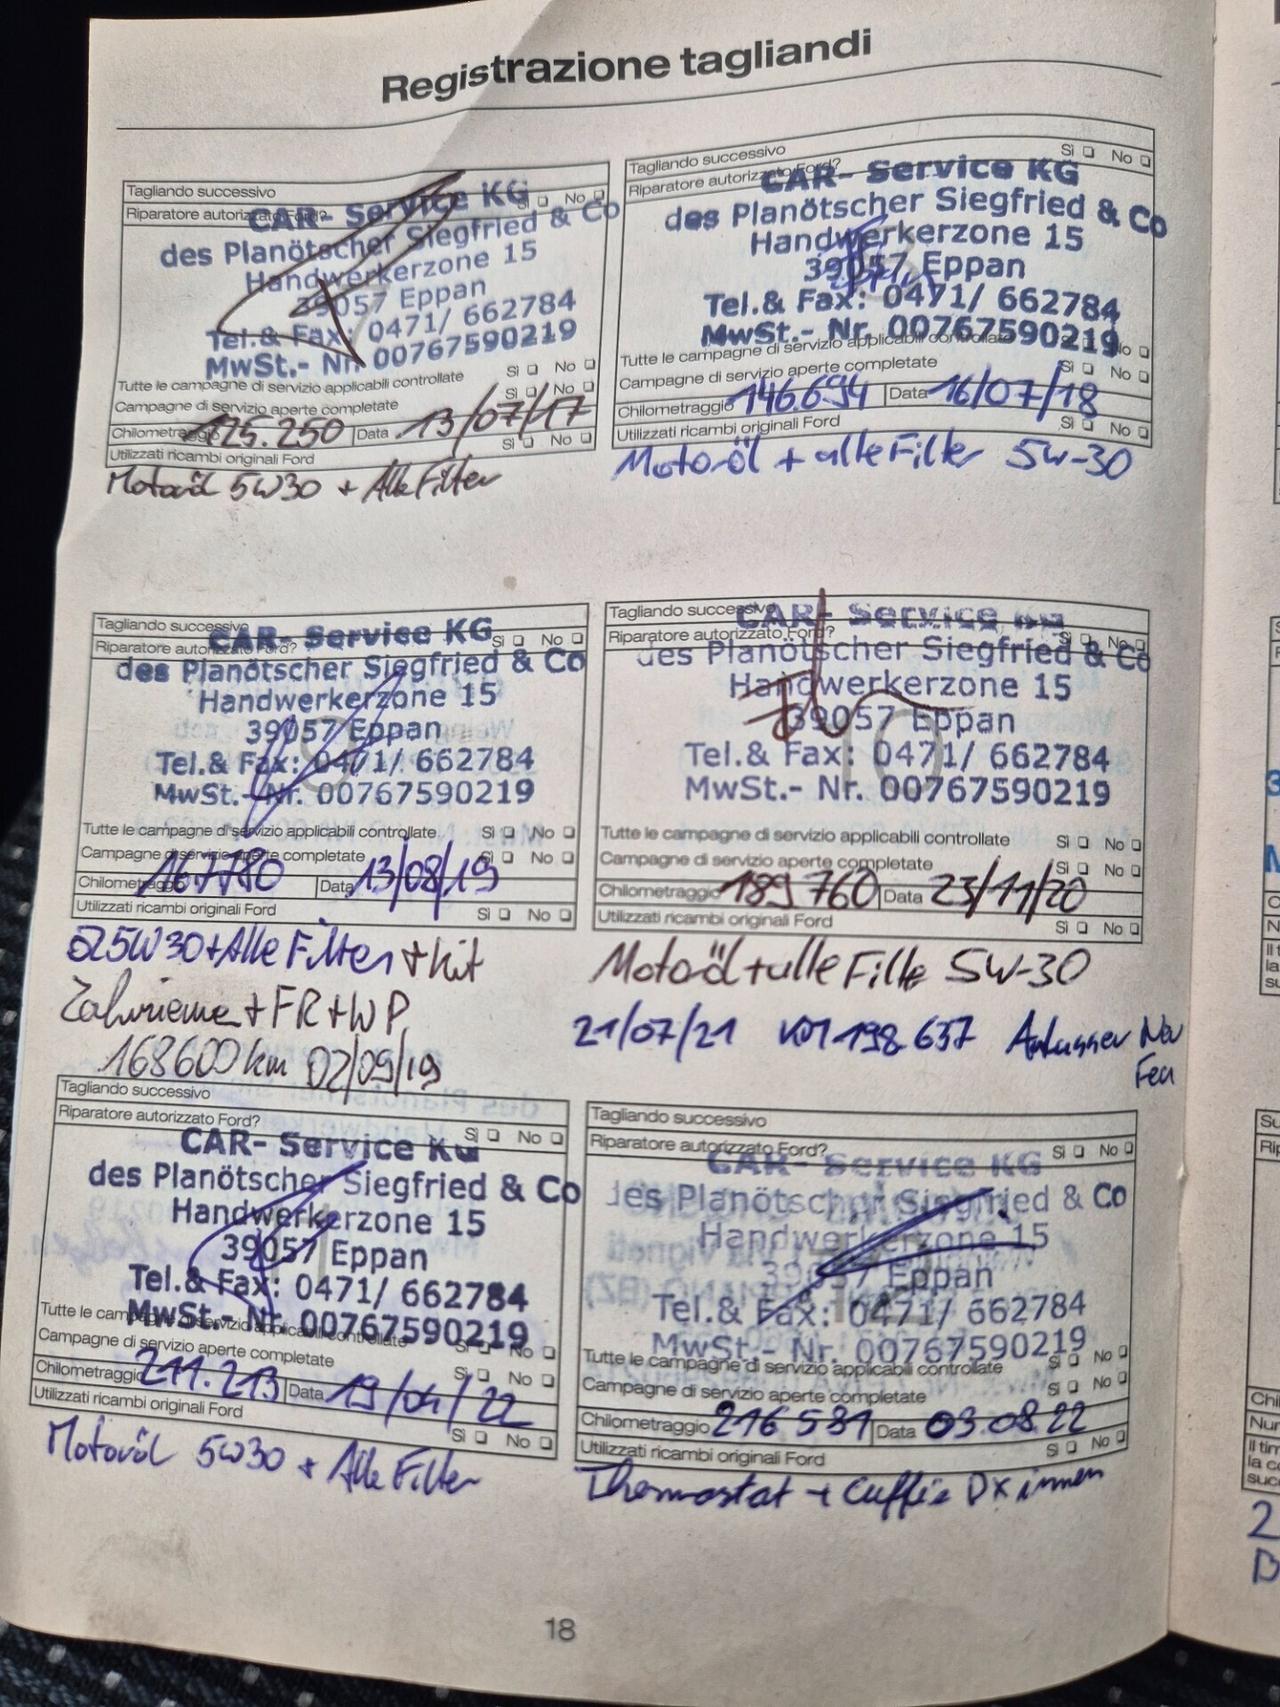 Registrazione tagliandi
Tagliando successivo
Riparatore autorizzato Ford? Sì No
CAR- Service KG
des Planötscher Siegfried & Co
Handwerkerzone 15
39057 Eppan
Tel.& Fax: 0471/ 662784
MwSt.- Nr. 00767590219
Tutte le campagne di servizio applicabili controllate Sì No
Campagne di servizio aperte completate Sì No
Chilometraggio 125.250 Data 13/07/17
Utilizzati ricambi originali Ford Sì No
Motoröl 5W30 + Alle Filter
Tagliando successivo Sì No
Riparatore autorizzato Ford?
CAR- Service KG
des Planötscher Siegfried & Co
Handwerkerzone 15
39057 Eppan
Tel.& Fax: 0471/ 662784
MwSt.- Nr. 00767590219
Tutte le campagne di servizio applicabili controllate No
Campagne di servizio aperte completate Sì No
Chilometraggio 146.694 Data 16/07/18
Utilizzati ricambi originali Ford Sì No
Motoröl + alle Filter 5W-30
Tagliando successivo
Riparatore autorizzato Ford? Sì No
CAR- Service KG
des Planötscher Siegfried & Co
Handwerkerzone 15
39057 Eppan
Tel.& Fax: 0471/ 662784
MwSt.- Nr. 00767590219
Tutte le campagne di servizio applicabili controllate Sì No
Campagne di servizio aperte completate Sì No
Chilometraggio 167780 Data 13/08/19
Utilizzati ricambi originali Ford Sì No
Öl 5W30 + Alle Filter + Kit
Zahnrieme + FR + WP
168600 km 02/09/19
Tagliando successivo
Riparatore autorizzato Ford? Sì No
CAR- Service KG
des Planötscher Siegfried & Co
Handwerkerzone 15
39057 Eppan
Tel.& Fax: 0471/ 662784
MwSt.- Nr. 00767590219
Tutte le campagne di servizio applicabili controllate Sì No
Campagne di servizio aperte completate Sì No
Chilometraggio 189760 Data 23/11/20
Utilizzati ricambi originali Ford Sì No
Motoröl + alle Filte 5W-30
21/07/21 KM 198.637
Tagliando successivo
Riparatore autorizzato Ford? Sì No
CAR- Service KG
des Planötscher Siegfried & Co
Handwerkerzone 15
39057 Eppan
Tel.& Fax: 0471/ 662784
MwSt.- Nr. 00767590219
Tutte le campagne di servizio applicabili controllate Sì No
Campagne di servizio aperte completate Sì No
Chilometraggio 211.213 Data 19/04/22
Utilizzati ricambi originali Ford Sì No
Motoröl 5W30 + Alle Filter
Tagliando successivo
Riparatore autorizzato Ford? Sì No
CAR- Service KG
des Planötscher Siegfried & Co
Handwerkerzone 15
39057 Eppan
Tel.& Fax: 0471/ 662784
MwSt.- Nr. 00767590219
Tutte le campagne di servizio applicabili controllate Sì No
Campagne di servizio aperte completate Sì No
Chilometraggio 216 531 Data 03.08.22
Utilizzati ricambi originali Ford Sì No
Thermostat + Cuffie DX innen
18